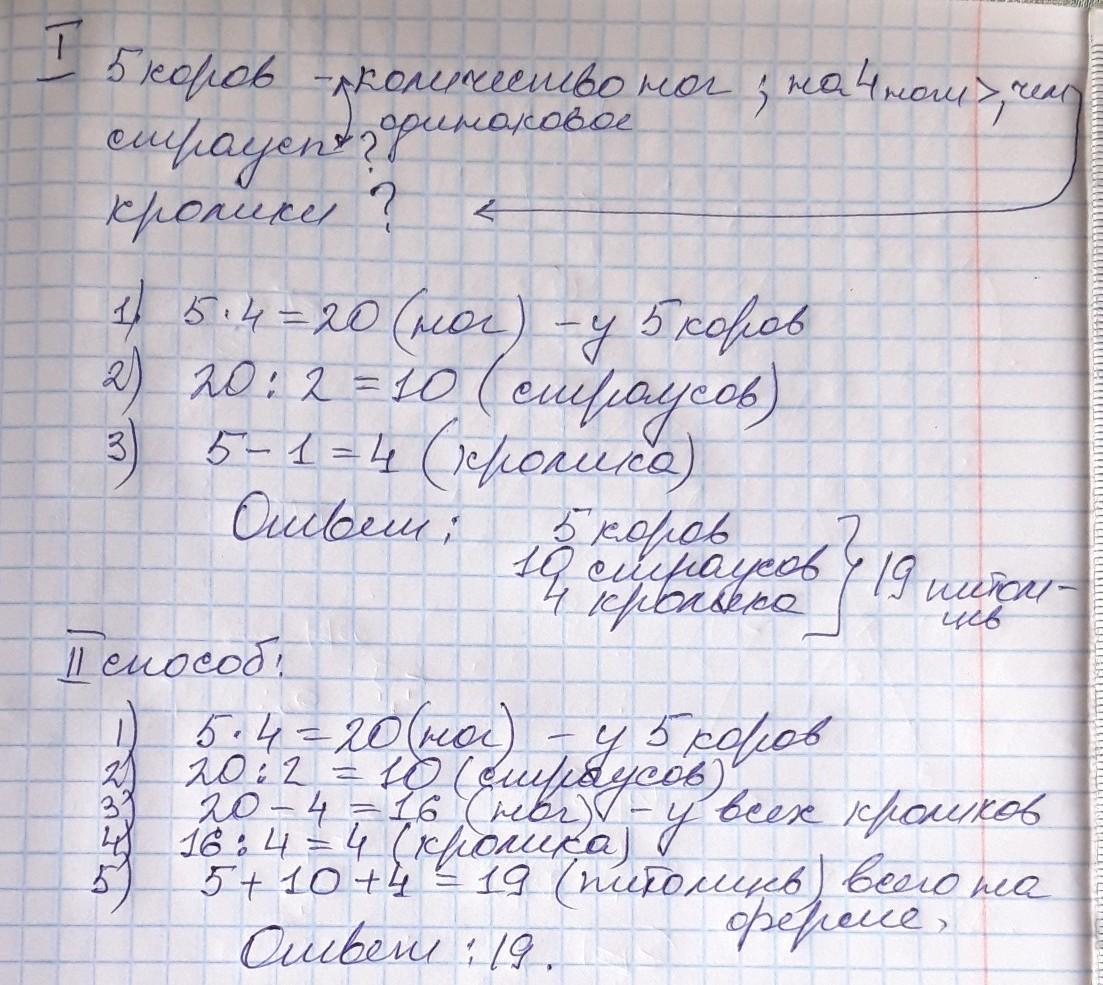 I
5 коров - количество ног ; на 4 ноги >, чем
одинаковое
страусы ?
кролики ?
1) 5·4=20 (ног) - у 5 коров
2) 20:2=10 (страусов)
3) 5-1=4 (кролика)
Ответ: 5 коров
10 страусов
4 кролика
19 питом-
цев
II способ:
1) 5·4=20(ног) - у 5 коров
2) 20:2=10 (страусов)
3) 20-4=16 (ног) - у всех кроликов
4) 16:4=4 (кролика)
5) 5+10+4=19 (питомцев) всего на
ферме.
Ответ: 19.